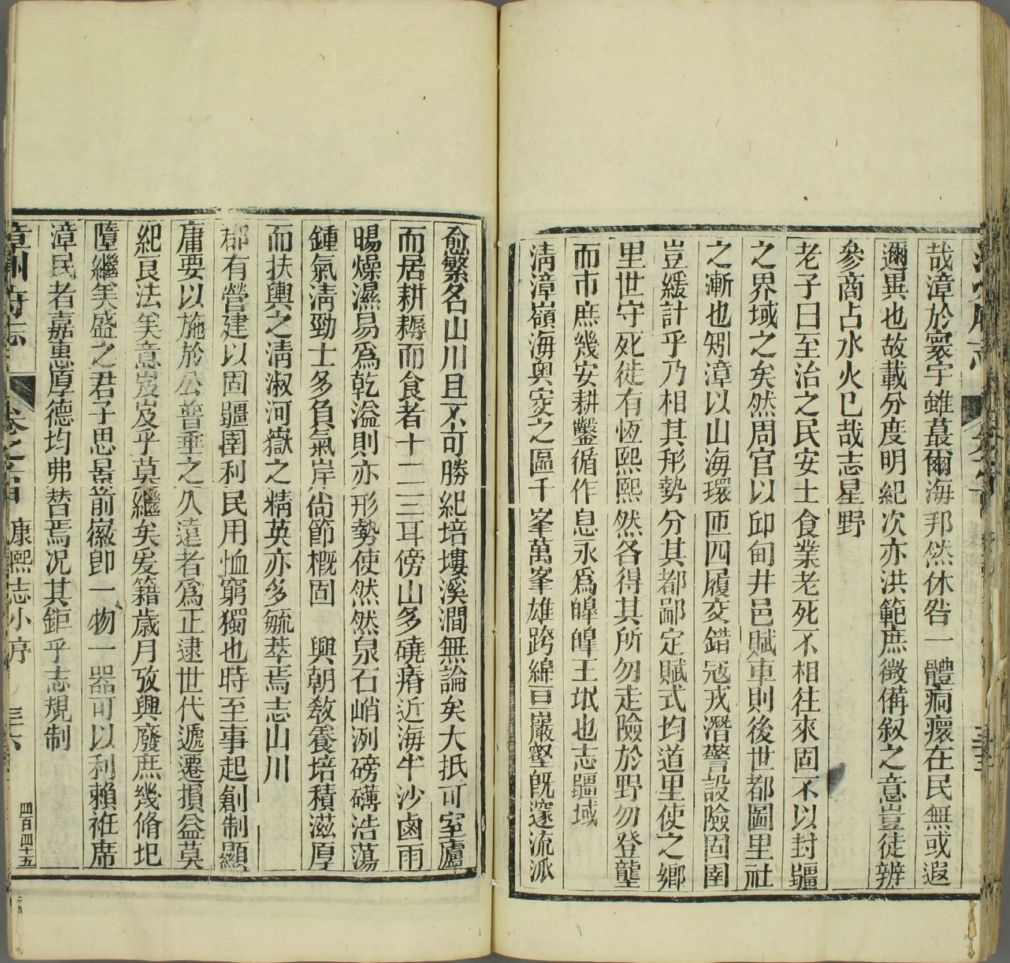 哉漳於寰宇雖蕞爾海邦然休咎一體痌瘝在民無或遐
邇異也故載分度明紀次亦洪範庶徵備叙之意豈徒辨
參商占水火已哉志星野
老子曰至治之民安土食業老死不相往來固不以封疆
之界域之矣然周官以邱甸井邑賦車則後世都圖里社
之漸也矧漳以山海環匝四履交錯冦戎潛警設險固圉
豈緩計乎乃相其形勢分其都鄙定賦式均道里使之鄉
里世守死徒有恆熙熙然各得其所勿走險於野勿登壟
而市庶幾安耕鑿循作息永爲皥皥王氓也志疆域
淸漳嶺海奧㝔之區千峯萬峯雄跨綿亘巖壑旣邃流派
俞繁名山川且不可勝紀培塿溪澗無論矣大抵可室廬
而居耕耨而食者十二三耳傍山多磽瘠近海半沙鹵雨
暘燥濕易爲乾溢則亦形勢使然然泉石峭洌磅礴浩蕩
鍾氣淸勁士多負氣岸尙節槪固 興朝敎養培積滋厚
而扶輿之淸淑河嶽之精英亦多毓萃焉志山川
郡有營建以固疆圉利民用恤窮獨也時至事起創制顯
庸要以施於公普垂之久遠者爲正逮世代遞遷損益莫
紀良法美意岌岌乎莫繼矣爰籍歲月攷興廢庶幾脩圮
墮繼美盛之君子思景前徽卽一物一器可以利賴袵席
漳民者嘉惠厚德均弗替焉况其鉅乎志規制
漳州府志 卷之首 康熙志小序 三六 四百四十五